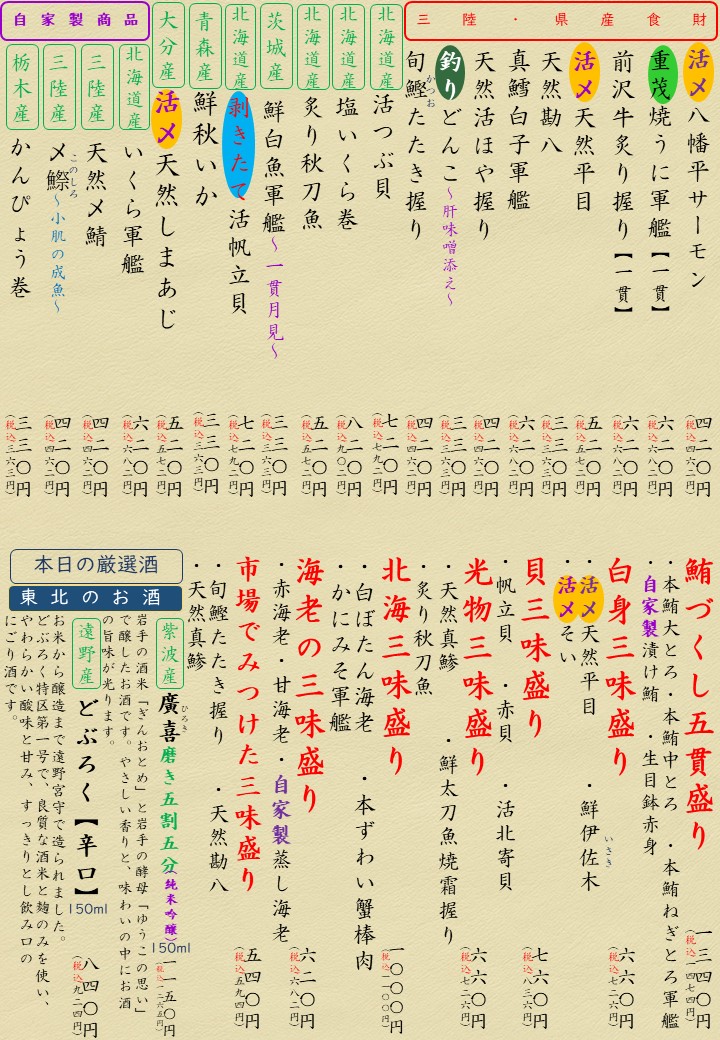 三陸・県産食財
活〆八幡平サーモン
四二〇円
(税込四六二円)
重茂焼うに軍艦【一貫】
六二〇円
(税込六八二円)
前沢牛炙り握り【一貫】
六二〇円
(税込六八二円)
活〆天然平目
五二〇円
(税込五七二円)
天然勘八
三三〇円
(税込三六三円)
真鱈白子軍艦
六二〇円
(税込六八二円)
天然活ほや握り
四二〇円
(税込四六二円)
釣りどんこ～肝味噌添え～
三三〇円
(税込三六三円)
旬鰹たたき握り
かつお
四二〇円
(税込四六二円)
北海道産
活つぶ貝
七二〇円
(税込七九二円)
北海道産
塩いくら巻
八二〇円
(税込九〇二円)
北海道産
炙り秋刀魚
五二〇円
(税込五七二円)
茨城産
鮮白魚軍艦～一貫月見～
三三〇円
(税込三六三円)
北海道産
剥きたて活帆立貝
七二〇円
(税込七九二円)
青森産
鮮秋いか
三三〇円
(税込三六三円)
大分産
活〆天然しまあじ
五二〇円
(税込五七二円)
自家製商品
北海道産
いくら軍艦
六二〇円
(税込六八二円)
三陸産
天然〆鯖
四二〇円
(税込四六二円)
三陸産
〆鰶～小肌の成魚～
このしろ
四二〇円
(税込四六二円)
栃木産
かんぴょう巻
三三〇円
(税込三六三円)
鮪づくし五貫盛り
・本鮪大とろ・本鮪中とろ・本鮪ねぎとろ軍艦
・自家製漬け鮪・生目鉢赤身
一三四〇円
(税込一四七四円)
白身三味盛り
・活〆天然平目・鮮伊佐木
いさき
・活〆そい
六六〇円
(税込七二六円)
貝三味盛り
・帆立貝・赤貝・活北寄貝
七六〇円
(税込八三六円)
光物三味盛り
・天然真鯵・鮮太刀魚焼霜握り
・炙り秋刀魚
六六〇円
(税込七二六円)
北海三味盛り
・白ぼたん海老・本ずわい蟹棒肉
・かにみそ軍艦
一〇〇〇円
(税込一一〇〇円)
海老の三味盛り
・赤海老・甘海老・自家製蒸し海老
六二〇円
(税込六八二円)
市場でみつけた三味盛り
・旬鰹たたき握り・天然勘八
・天然真鯵
五四〇円
(税込五九四円)
本日の厳選酒
東北のお酒
紫波産
廣喜磨き五割五分(純米吟醸)150ml
ひろき
一一五〇円
(税込一二六五円)
岩手の酒米「ぎんおとめ」と岩手の酵母「ゆうこの思い」
で醸したお酒です。やさしい香りと、味わいの中にお酒
の旨味が光ります。
遠野産
どぶろく【辛口】150ml
八四〇円
(税込九二四円)
お米から醸造まで遠野宮守で造られました。
どぶろく特区第一号で、良質な酒米と麹のみを使い、
やわらかい酸味と甘み、すっきりとし飲み口の
にごり酒です。